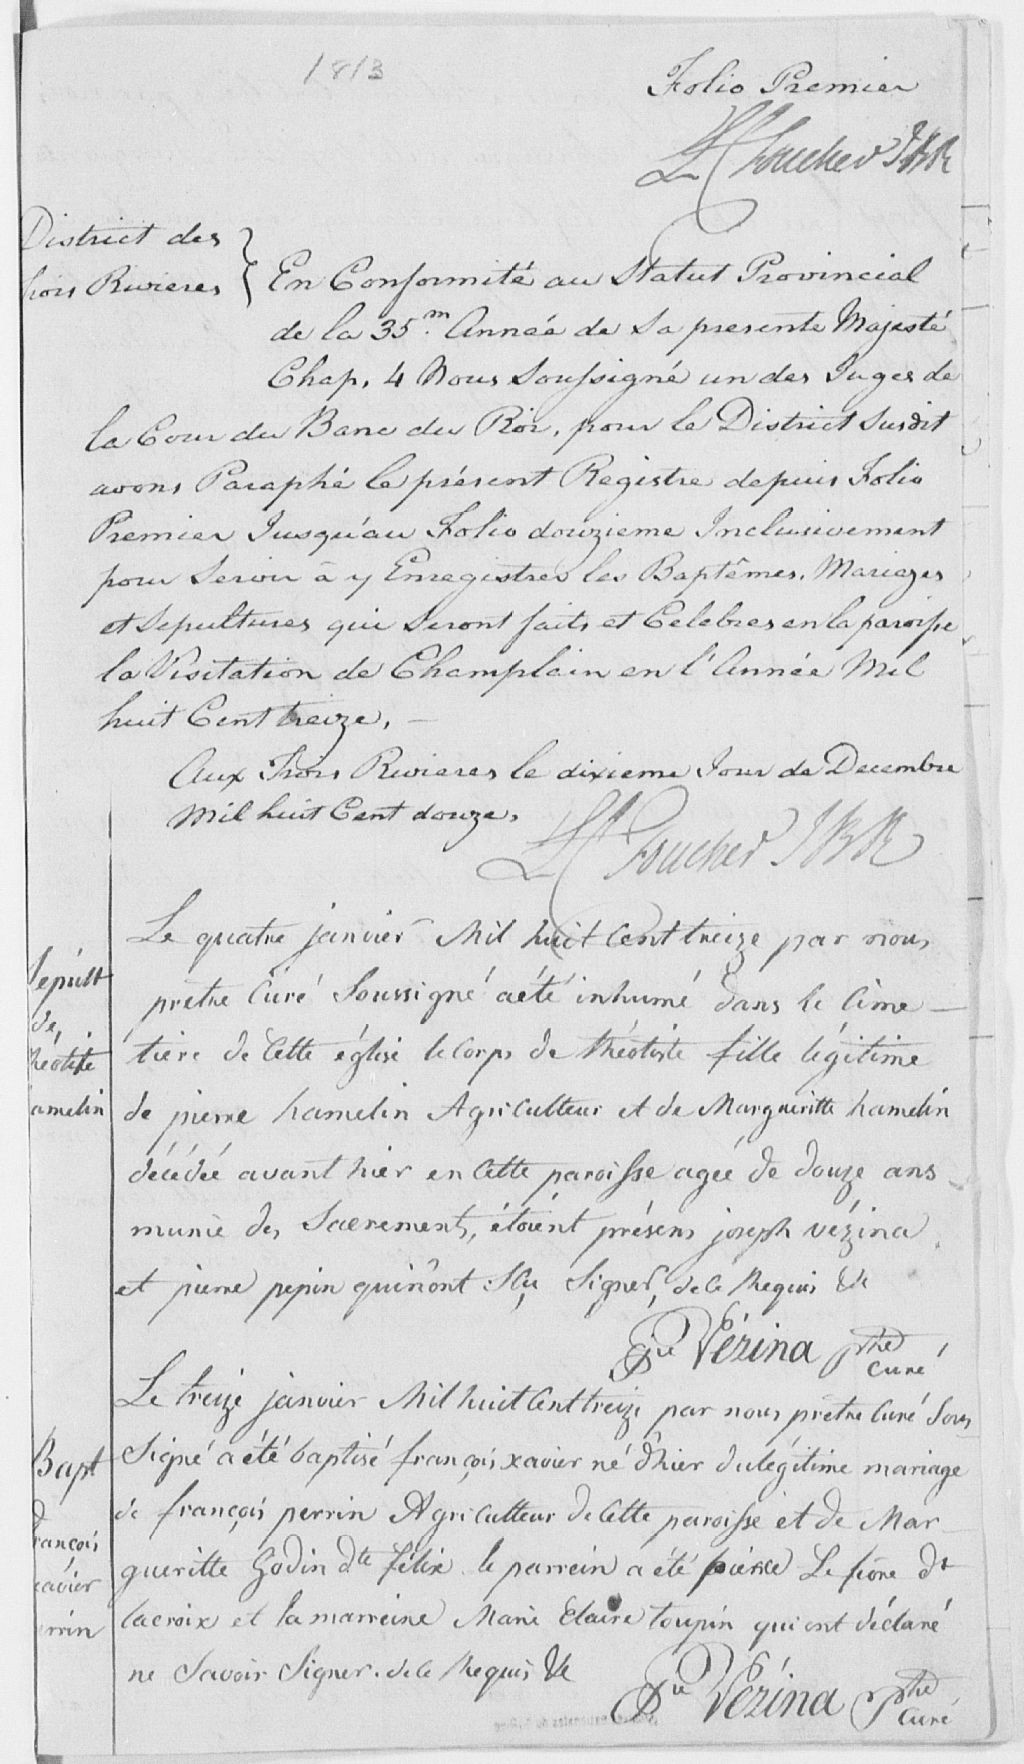 1813
Folio Premier
L C Foucher J B R
District des
trois Rivieres
En Conformité au Statut Provincial
de la 35.m Année de Sa presente Majesté
Chap. 4 Nous Soussigné un des Juges de
la Cour du Banc du Roi, pour le District Susdit
avons Paraphé le présent Registre depuis Folio
Premier Jusqu'au Folio douzieme Inclusivement
pour Servir à y Enregistrer les Baptêmes, Mariages
et Sepultures qui Seront faits et Celebres en la paroisse
la Visitation de Champlain en l'Année Mil
huit Cent treize. —
Aux Trois Rivieres le dixieme Jour de Decembre
Mil huit Cent douze.
L C Foucher J B R
Sepult
de
théotiste
hamelin
Le quatre janvier Mil huit Cent treize par nous
prêtre Curé Soussigné a été inhumé dans le Cime—
tière de Cette église le Corps de théotiste fille légitime
de pierre hamelin Agriculteur et de Margueritte hamelin
décédée avant hier en Cette paroisse agée de douze ans
munie des Sacrements, étoient présens joseph vézina
et pierre pepin qui n'ont sçu Signer, de ce Requis &c
Vézina ptre
Curé
Bapt
d
françois
xavier
perrin
Le treize janvier Mil huit Cent treize par nous prêtre Curé Sous
Signé a été baptisé françois xavier né d'hier du légitime mariage
de françois perrin Agriculteur de Cette paroisse et de Mar—
gueritte Godin dte félix le parrein a été pierre Le sieur dt
lacroix et la marreine Marie Claire toupin qui ont déclaré
ne Savoir Signer. de ce Requis &c
Vézina ptre
Curé